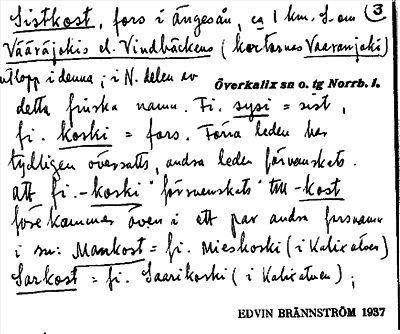 Sistkost, fors i Ängesån, ca 1 km. S. om (3
Vääräjokis el. Vindbäckens (kartornas Vaaranjoki)
utlopp i denna; i N. delen av Överkalix sn o. tg Norrb. l.
detta finska namn. Fi. sysi = sist,
fi. koski = fors. Förra leden har
tydligen översatts, andra leden förvanskats.
Att fi. -koski "försvenskats" till -kost
förekommer även i ett par andra forsnamn
i sn: Mankost = fi. Mieskoski (i Kalixälven)
Sarkost = fi. Saarikoski (i Kalixälven);
EDVIN BRÄNNSTRÖM 1937